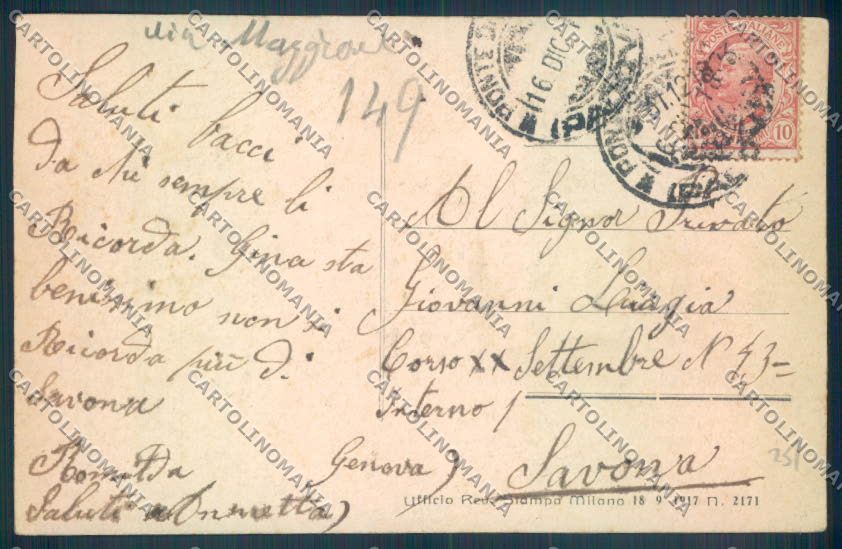 via
149
Saluti baci
da chi sempre li
Ricorda. Gina sta
benissimo non si
Ricorda più di
Savona
Romilda
Saluti a
POSTE ITALIANE
10
16 DIC
Al Signor Privato
Giovanni
Corso XX Settembre N 43
Interno 1
(Genova)
Savona
251
Ufficio Rev. Stampa Milano 18 9 1917 N. 2171
CARTOLINOMANIA